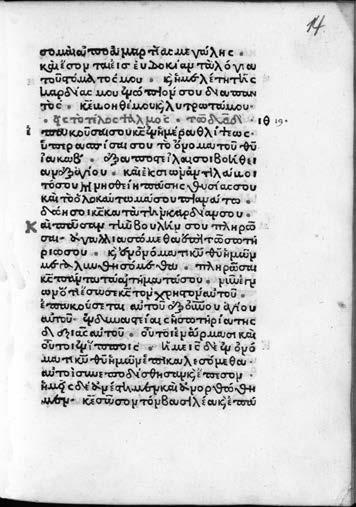 14
σομαι ἀπὸ ἁμαρτίας μεγάλης .
καὶ ἔσονται εἰς εὐδοκίαν τὰ λόγια
τοῦ στόματός μου . κ ἡ μελέτη τῆς
καρδίας μου ἐνώπιόν σου διαπαν
τὸς . κε βοηθέ μου κ λυτρωτά μου .
εἰς τὸ τέλος ψαλμὸς τῶ δαδ ιθ 19.
ἐπακούσαι σου κς ἐν ἡμέρα θλίψεως .
ὑπερασπίσαι σου τὸ ὄνομα τοῦ θυ
ἰακώβ . ἐξαποστείλαι σοι βοήθει
αν ἐξ ἁγίου . καὶ ἐκ σιὼν ἀντιλάβοι
τό σου μνησθείη πάσης θυσίας σου
καὶ τὸ ὁλοκαύτωμά σου πιανάτω
δώη σοι κς κατὰ τὴν καρδίαν σου
Καὶ πᾶσαν τὴν βουλήν σου πληρώ
σαι . ἀγαλλιασόμεθα ἐπὶ τῶ σωτη
ρίω σου . κ ἐν ὀνόματι κυ θυ ἡμῶν
μεγαλυνθησόμεθα . πληρώσαι
κς πάντα τὰ αἰτήματά σου . νῦν ἔγν
ων ὅτι ἔσωσε κς τὸν χριστὸν αὐτοῦ .
ἐπακούσεται αὐτοῦ ἐξ οὐνοῦ ἁγίου
αὐτοῦ . ἐν δυναστείαις ἡ σωτηρία τῆς
δεξιᾶς αὐτοῦ . οὗτοι ἐν ἅρμασι καὶ
οὗτοι ἐν ἵπποις . ἡμεῖς δὲ ἐν ὀνό
ματι κυ θυ ἡμῶν ἐπικαλεσόμεθα .
αὐτοὶ συνεποδίσθησαν κ ἔπεσον
ἡμεῖς δὲ ἀνέστημεν καὶ ἀνορθώθη
μεν . κε σῶσον τὸν βασιλέα κ ἐπά